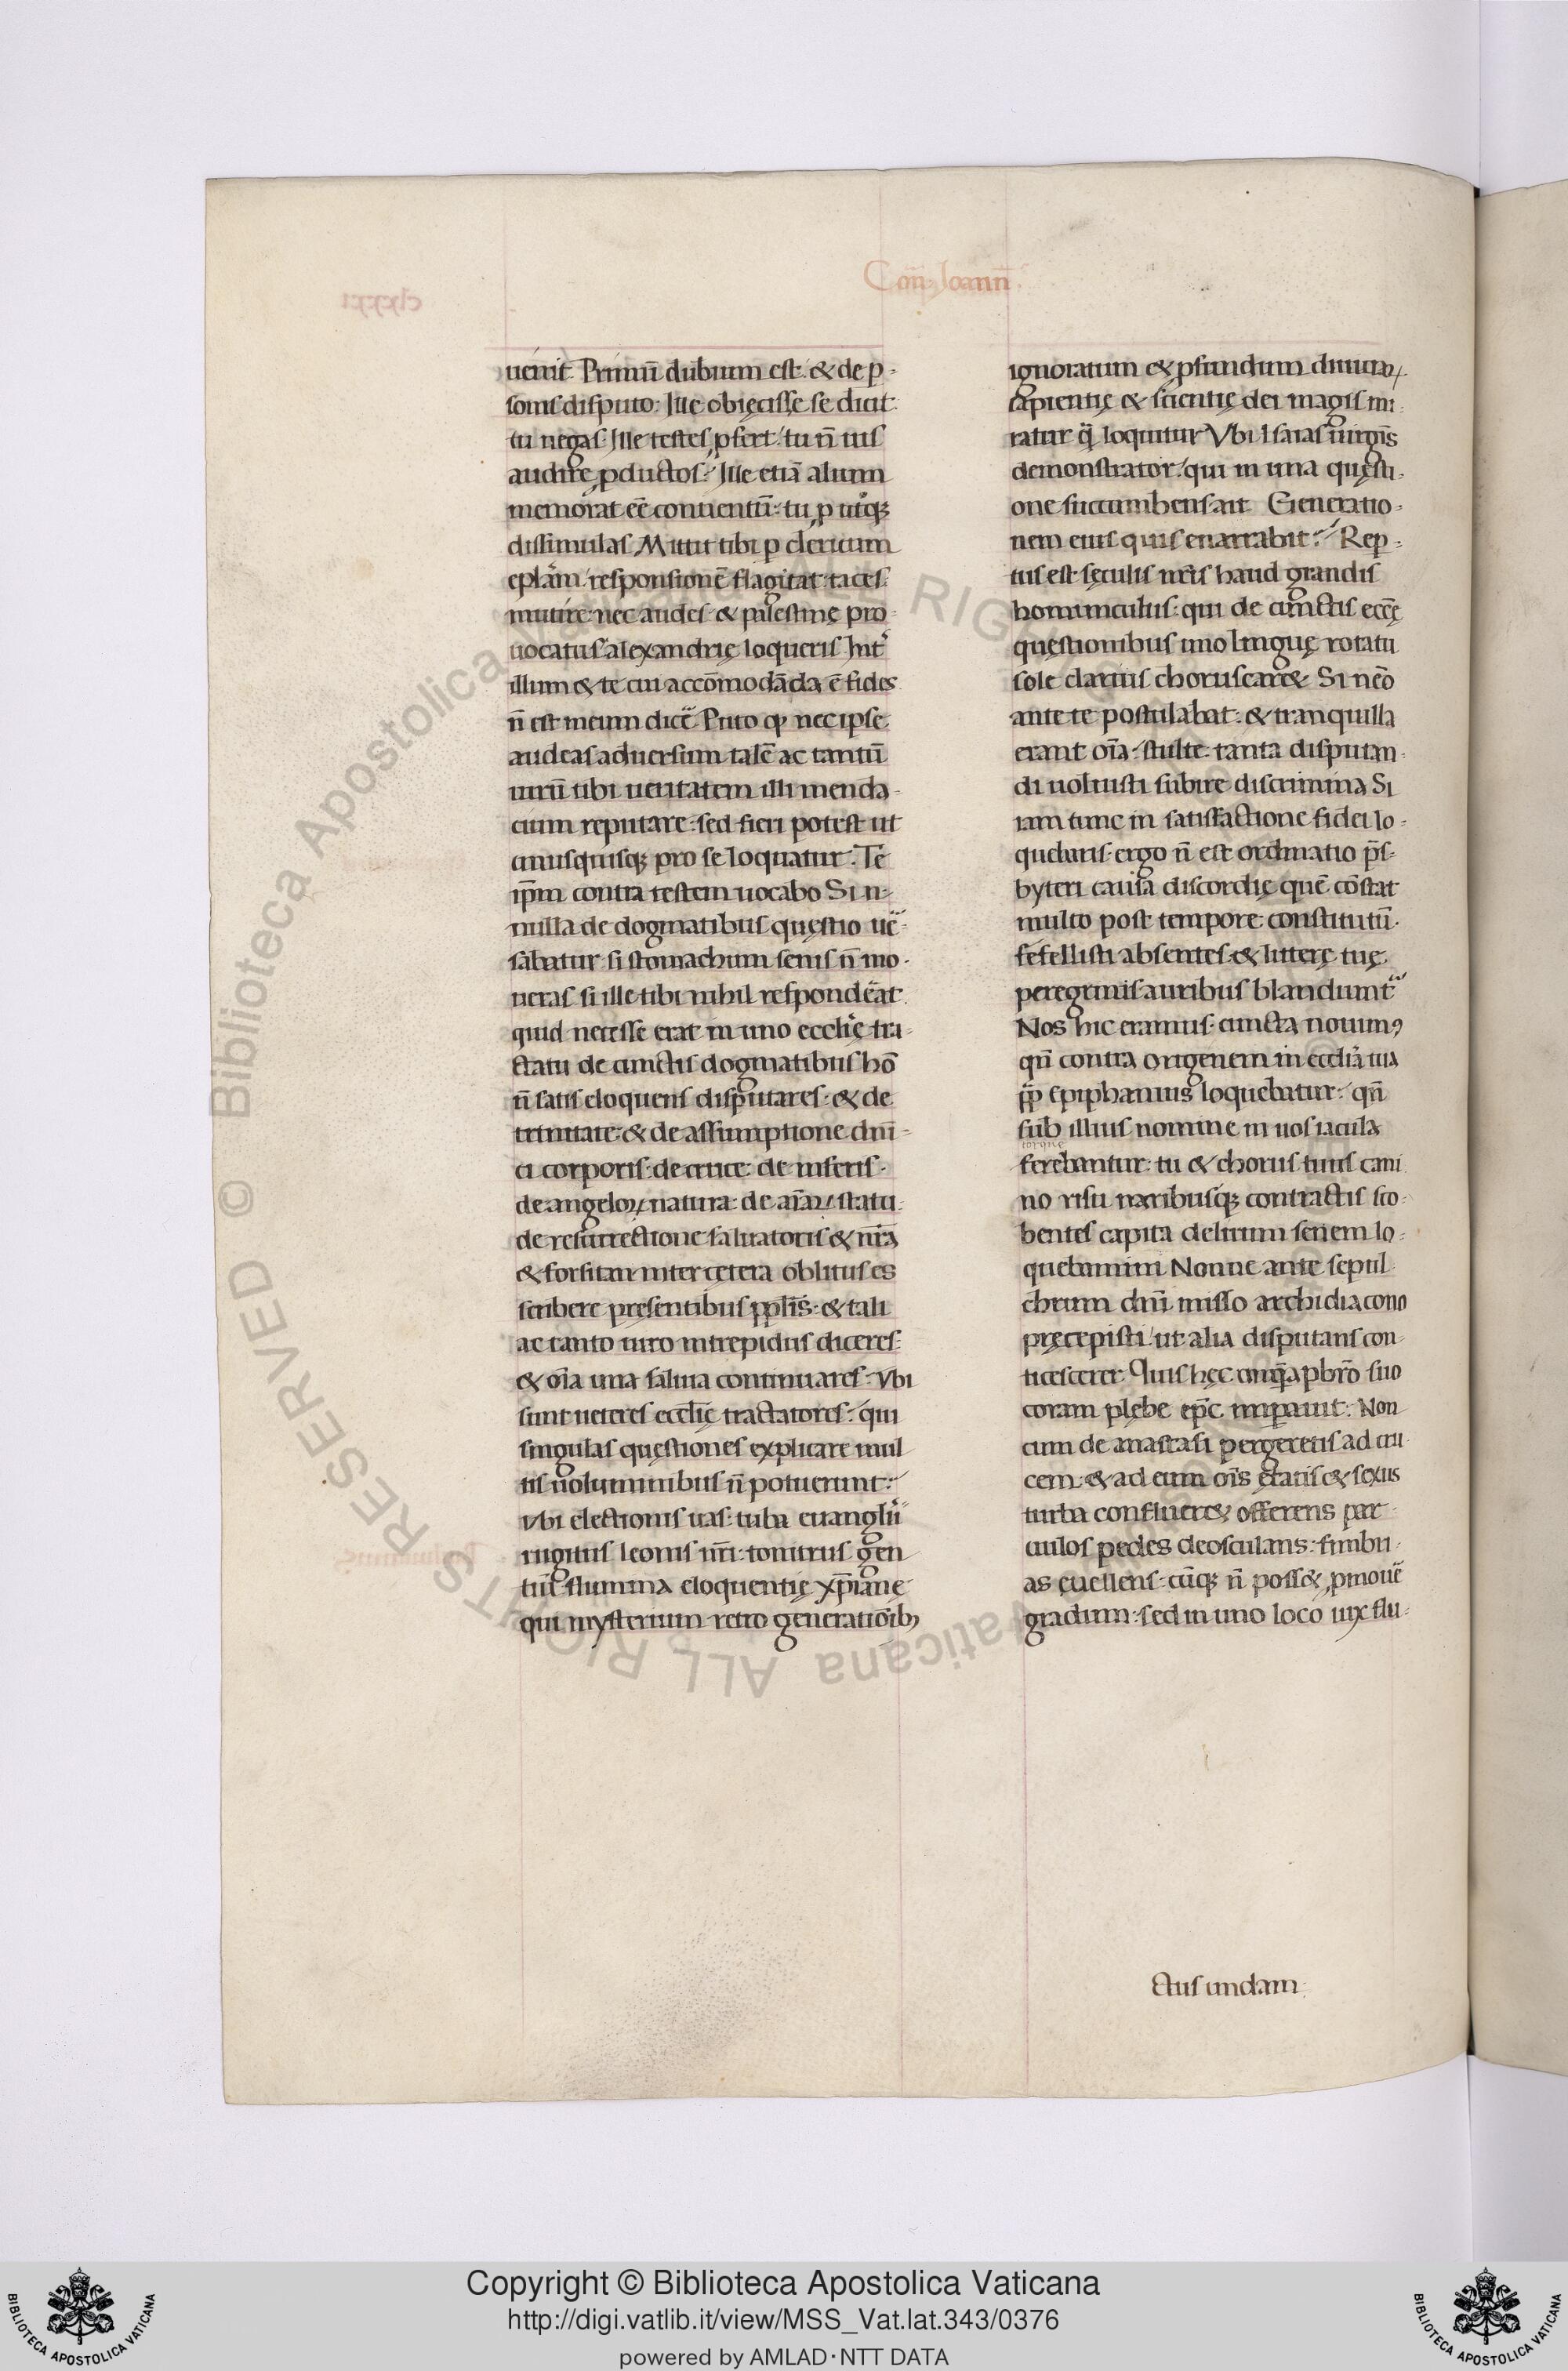 Con̄. Joann̄.
uenit. Primū dubium est. & de p̲-
sonis disputo. Ille obięcisse se dicit.
tu negas. Ille testes ꝓfert. tu n̄ uis
audire ꝓductos. Ille etiā alium
memorat eē conuentū. tu ꝓ utꝛ́q;
dissimulas. Mittit tibi p̲ clericum
eplam. responsionē flagitat. taces.
mutire nec audes. & palestinę pro-
uocatus alexandrię loqueris. Int̾
illum & te cui accōmodāda ē fides
n̄ est meum dicē. Puto ꝙ nec ipse
audeas aduersum talē ac tantū
uirū tibi ueritatem illi menda-
cium reputare. sed fieri potest ut
unusquisq; pro se loquatur. Te
ip̄m contra testem uocabo. Si n-
nulla de dogmatibus quęstio uē-
sabatur. si stomachum senis n̄ mo-
ueras. si ille tibi nihil respondēat
quid necesse erat in uno ecclię tra-
ctatu de cunctis dogmatibus hō
n̄ satis eloquens disputares. & de
trinitate. & de assumptione dnī-
ci corporis. de cruce. de inferis.
de angeloꝝ natura. de aīaꝝ statu.
de resurrectione saluatoris & nr̄a
& forsitan inter cętera oblitus es
scribere pręsentibus ppl̄is. & tali
ac tanto uiro intrepidus diceres.
& oīa una saliua continuares. Vbi
sunt ueteres ecclię tractatores. qui
singulas quęstiones explicare mul
tis uoluminibus n̄ potuerunt.
Vbi electionis uas. tuba euanglii
rugitus leonis nr̄i. tonitrus gen
tiū. flumina eloquentię xp̄ianę
qui mysterium retro generatiōib;
ignoratum & ꝓfundum diuitiaꝝ
sapientię & scientię dei magis mi-
ratur q̄ loquitur. Vbi Isaias uirgīs
demonstrator. qui in una quęsti-
one succumbens ait. Generatio-
nem eius quis enarrabit. Rep̲-
tus est sęculis nr̄is haud grandis
homunculus. qui de cunctis ecc̄ę
quęstionibus uno linguę rotatu
sole clarius choruscar&. Si nēo
ante te postulabat. & tranquilla
erant oīa. stulte tanta disputan-
di uoluisti subire discrimina. Si
iam tunc in satisfactione fidei lo-
quebaris. ergo n̄ est ordinatio p̄s-
byteri causa discordię. quē cōstat
multo post tempore constitutū.
fefellisti absentes. & litterę tuę
peregrinis auribus blandiunt̾
Nos hic eramus. cuncta nouim;
qn̄ contra origenem in ecclia tua
pp̄ Epiphanius loquebatur. qn̄
sub illius nomine in uos iacula
torque
ferebantur. tu & chorus tuus cani
no risu naribusq; contractis sca-
bentes capita delirum senem lo-
quebamini. Nonne ante sepul
chrum dn̄i misso archidiacono
pręcepisti. ut alia disputans con-
ticesceret. Quis hęc unq̄ pbrō suo
coram plębe ep̄c imp̲auit. Non
cum de anastasi pergeretis ad cru
cem. & ad eum oīs ętatis & sexus
turba conflueret offerens par-
uulos pedes deosculans. fimbri-
as ęuellens. cūq; n̄ poss& ꝓmouē
gradum. sed in uno loco uix flu-
ctus undam.